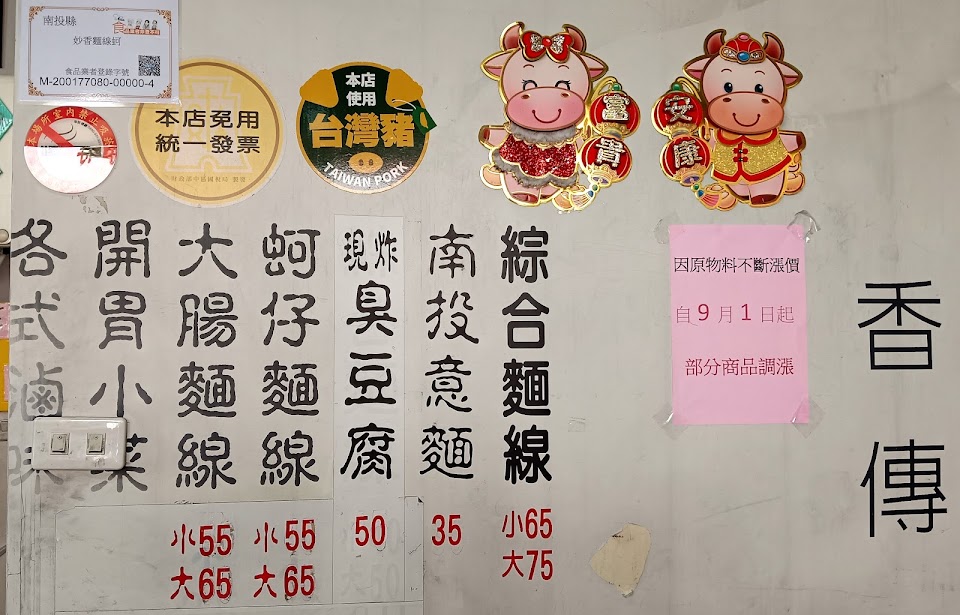 南投縣
妙香麵線蚵
食品業者登錄字號
M-200177080-00000-4
本場所室內禁止吸菸
本店免用
統一發票
本店
使用
台灣豬
TAIWAN PORK
富貴
安康
綜合麵線
小65
大75
南投意麵
35
現炸
臭豆腐
50
蚵仔麵線
小55
大65
大腸麵線
小55
大65
開胃小菜
各式滷味
因原物料不斷漲價
自9月1日起
部分商品調漲
香傳